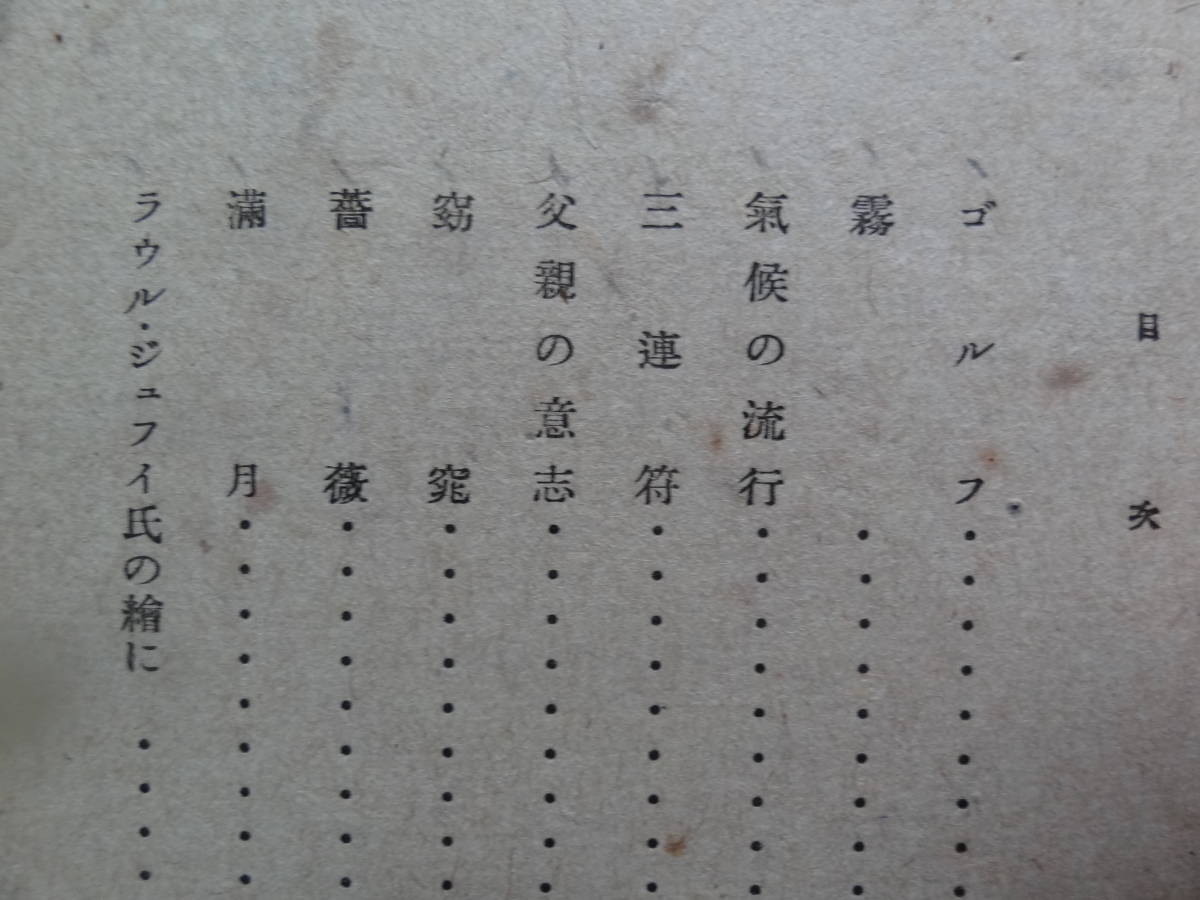 目次
ゴルフ・・・・・・・・・
霧・・・・・・・・・
氣候の流行・・・・・・・・・
三連符・・・・・・・・・
父親の意志・・・・・・・・・
窈窕・・・・・・・・・
薔薇・・・・・・・・・
滿月・・・・・・・・・
ラウル・ジュフイ氏の繪に・・・・